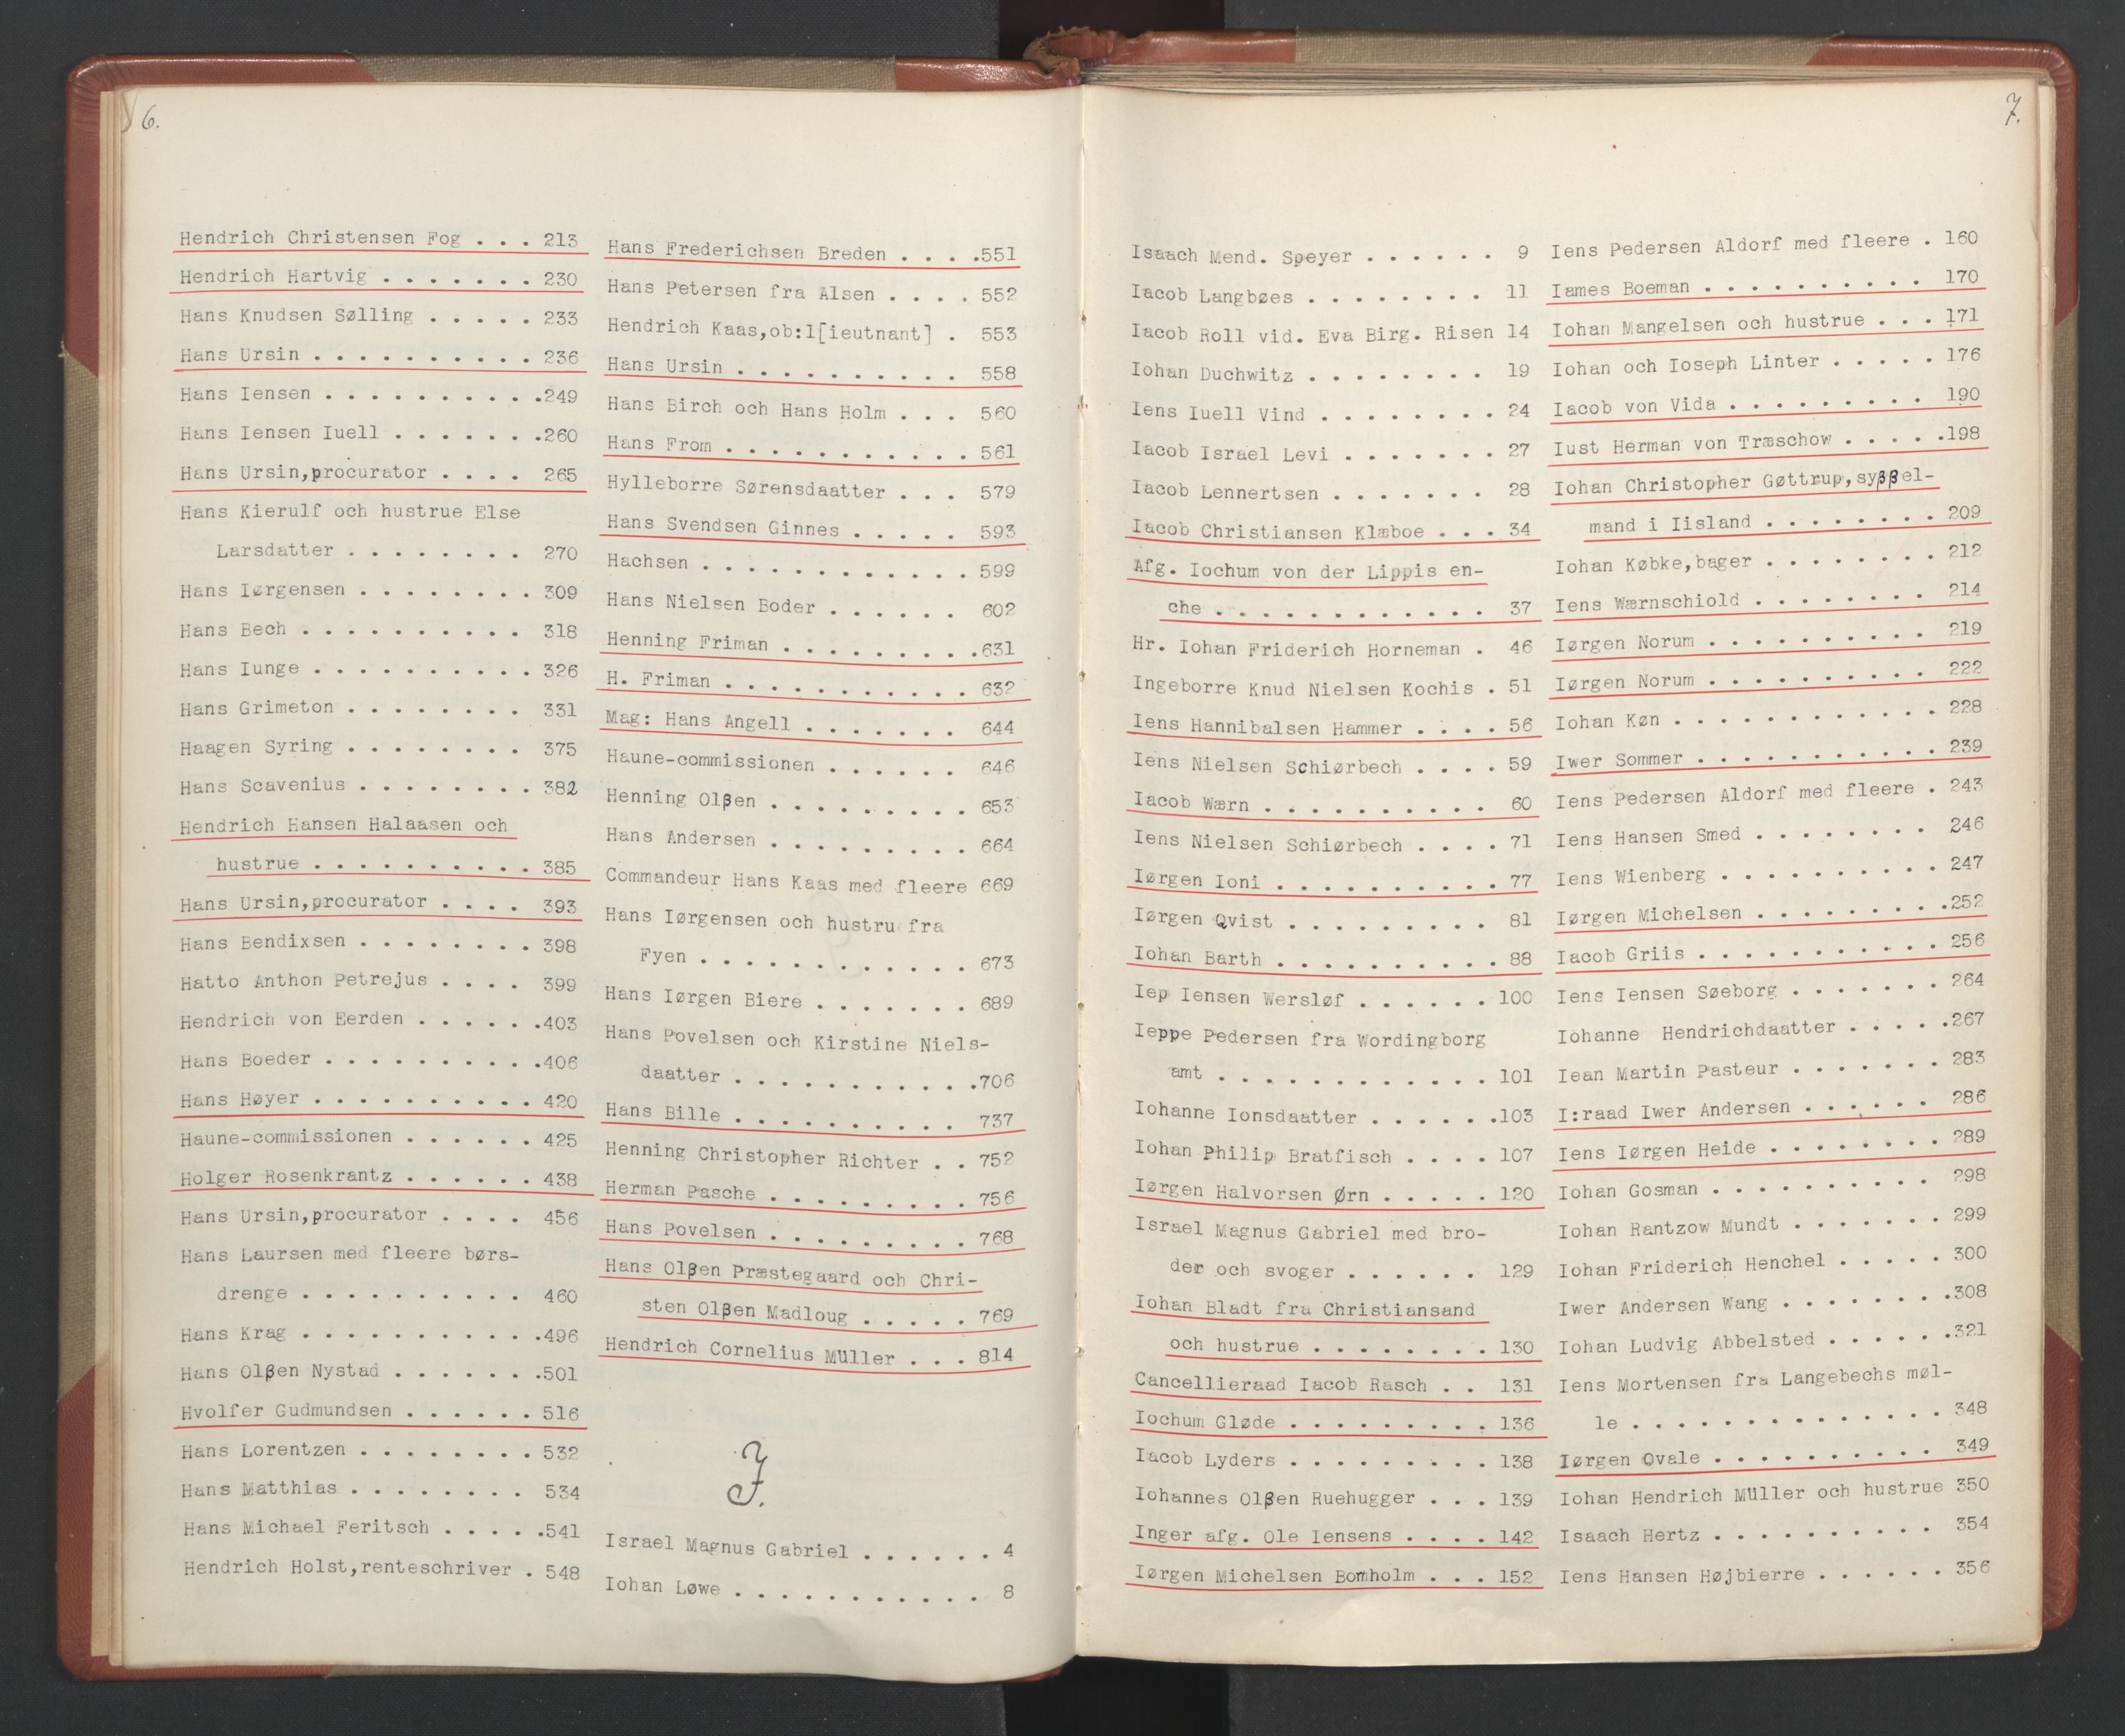 6.
Hendrich Christensen Fog . . . 213
Hendrich Hartvig . . . . . . . 230
Hans Knudsen Sølling . . . . . 233
Hans Ursin . . . . . . . . . . 236
Hans Iensen . . . . . . . . . .249
Hans Iensen Iuell . . . . . . .260
Hans Ursin,procurator . . . . 265
Hans Kierulf och hustrue Else
Larsdatter . . . . . . . . 270
Hans Iørgensen . . . . . . . . 309
Hans Bech . . . . . . . . . . 318
Hans Iunge . . . . . . . . . . 326
Hans Grimeton . . . . . . . . 331
Haagen Syring . . . . . . . . 375
Hans Scavenius . . . . . . . . 382
Hendrich Hansen Halaasen och
hustrue . . . . . . . . . . 385
Hans Ursin,procurator . . . . 393
Hans Bendixsen . . . . . . . . 398
Hatto Anthon Petrejus . . . . 399
Hendrich von Eerden . . . . . .403
Hans Boeder . . . . . . . . . .406
Hans Høyer . . . . . . . . . . 420
Haune-commissionen . . . . . . 425
Holger Rosenkrantz . . . . . . 438
Hans Ursin,procurator . . . . 456
Hans Laursen med fleere børs-
drenge . . . . . . . . . . 460
Hans Krag . . . . . . . . . . .496
Hans Olßen Nystad . . . . . . .501
Hvolfer Gudmundsen . . . . . . 516
Hans Lorentzen . . . . . . . . 532
Hans Matthias . . . . . . . . 534
Hans Michael Feritsch . . . . .541
Hendrich Holst,renteschriver . 548
Hans Frederichsen Breden . . . .551
Hans Petersen fra Alsen . . . . 552
Hendrich Kaas,ob:l[ieutnant] . 553
Hans Ursin . . . . . . . . . . 558
Hans Birch och Hans Holm . . . 560
Hans From . . . . . . . . . . . 561
Hylleborre Sørensdaatter . . . 579
Hans Svendsen Ginnes . . . . . 593
Hachsen . . . . . . . . . . . . 599
Hans Nielsen Boder . . . . . . 602
Henning Friman . . . . . . . . .631
H. Friman . . . . . . . . . . . 632
Mag: Hans Angell . . . . . . . 644
Haune-commissionen . . . . . . 646
Henning Olßen . . . . . . . . . 653
Hans Andersen . . . . . . . . . 664
Commandeur Hans Kaas med fleere 669
Hans Iørgensen och hustru fra
Fyen . . . . . . . . . . . . 673
Hans Iørgen Biere . . . . . . . 689
Hans Povelsen och Kirstine Niels-
daatter . . . . . . . . . . .706
Hans Bille . . . . . . . . . . 737
Henning Christopher Richter . . 752
Herman Pasche . . . . . . . . . 756
Hans Povelsen . . . . . . . . . 768
Hans Olßen Præstegaard och Chri-
sten Olßen Madloug . . . . . 769
Hendrich Cornelius Müller . . . 814
I.
Israel Magnus Gabriel . . . . . . 4
Iohan Løwe . . . . . . . . . . . 8
7.
Isaach Mend. Speyer . . . . . . 9
Iacob Langbøes . . . . . . . . 11
Iacob Roll vid. Eva Birg. Risen 14
Iohan Duchwitz . . . . . . . . 19
Iens Iuell Vind . . . . . . . . 24
Iacob Israel Levi . . . . . . . 27
Iacob Lennertsen . . . . . . . 28
Iacob Christiansen Klæboe . . . 34
Afg. Iochum von der Lippis en-
che . . . . . . . . . . . . 37
Hr. Iohan Friderich Horneman . 46
Ingeborre Knud Nielsen Kochis . 51
Iens Hannibalsen Hammer . . . . 56
Iens Nielsen Schiørbech . . . . 59
Iacob Wærn . . . . . . . . . . 60
Iens Nielsen Schiørbech . . . . 71
Iørgen Ioni . . . . . . . . . . 77
Iørgen Qvist . . . . . . . . . 81
Iohan Barth . . . . . . . . . . 88
Iep Iensen Wersløf . . . . . . 100
Ieppe Pedersen fra Wordingborg
amt . . . . . . . . . . . . 101
Iohanne Ionsdaatter . . . . . .103
Iohan Philip Bratfisch . . . . 107
Iørgen Halvorsen Ørn . . . . . 120
Israel Magnus Gabriel med bro-
der och svoger . . . . . . 129
Iohan Bladt fra Christiansand
och hustrue . . . . . . . . 130
Cancellieraad Iacob Rasch . . 131
Iochum Gløde . . . . . . . . . 136
Iacob Lyders . . . . . . . . . 138
Iohannes Olßen Ruehugger . . . 139
Inger afg. Ole Iensens . . . . 142
Iørgen Michelsen Bornholm . . . 152
Iens Pedersen Aldorf med fleere . 160
Iames Boeman . . . . . . . . . . 170
Iohan Mangelsen och hustrue . . . 171
Iohan och Ioseph Linter . . . . . 176
Iacob von Vida . . . . . . . . . 190
Iust Herman von Træschow . . . . .198
Iohan Christopher Gøttrup,syßßel-
mand i Iisland . . . . . . . . 209
Iohan Købke,bager . . . . . . . . 212
Iens Wærnschiold . . . . . . . . 214
Iørgen Norum . . . . . . . . . . 219
Iørgen Norum . . . . . . . . . . 222
Iohan Køn . . . . . . . . . . . . 228
Iwer Sommer . . . . . . . . . . . 239
Iens Pedersen Aldorf med fleere . 243
Iens Hansen Smed . . . . . . . . 246
Iens Wienberg . . . . . . . . . . 247
Iørgen Michelsen . . . . . . . . .252
Iacob Griis . . . . . . . . . . . 256
Iens Iensen Søeborg . . . . . . . 264
Iohanne Hendrichdaatter . . . . .267
Iean Martin Pasteur . . . . . . . 283
I:raad Iwer Andersen . . . . . . 286
Iens Iørgen Heide . . . . . . . . 289
Iohan Gosman . . . . . . . . . . 298
Iohan Rantzow Mundt . . . . . . . 299
Iohan Friderich Henchel . . . . . 300
Iwer Andersen Wang . . . . . . . .308
Iohan Ludvig Abbelsted . . . . . .321
Iens Mortensen fra Langebechs møl-
le . . . . . . . . . . . . . . 348
Iørgen Qvale . . . . . . . . . . 349
Iohan Hendrich Müller och hustrue 350
Isaach Hertz . . . . . . . . . . 354
Iens Hansen Højbierre . . . . . . 356